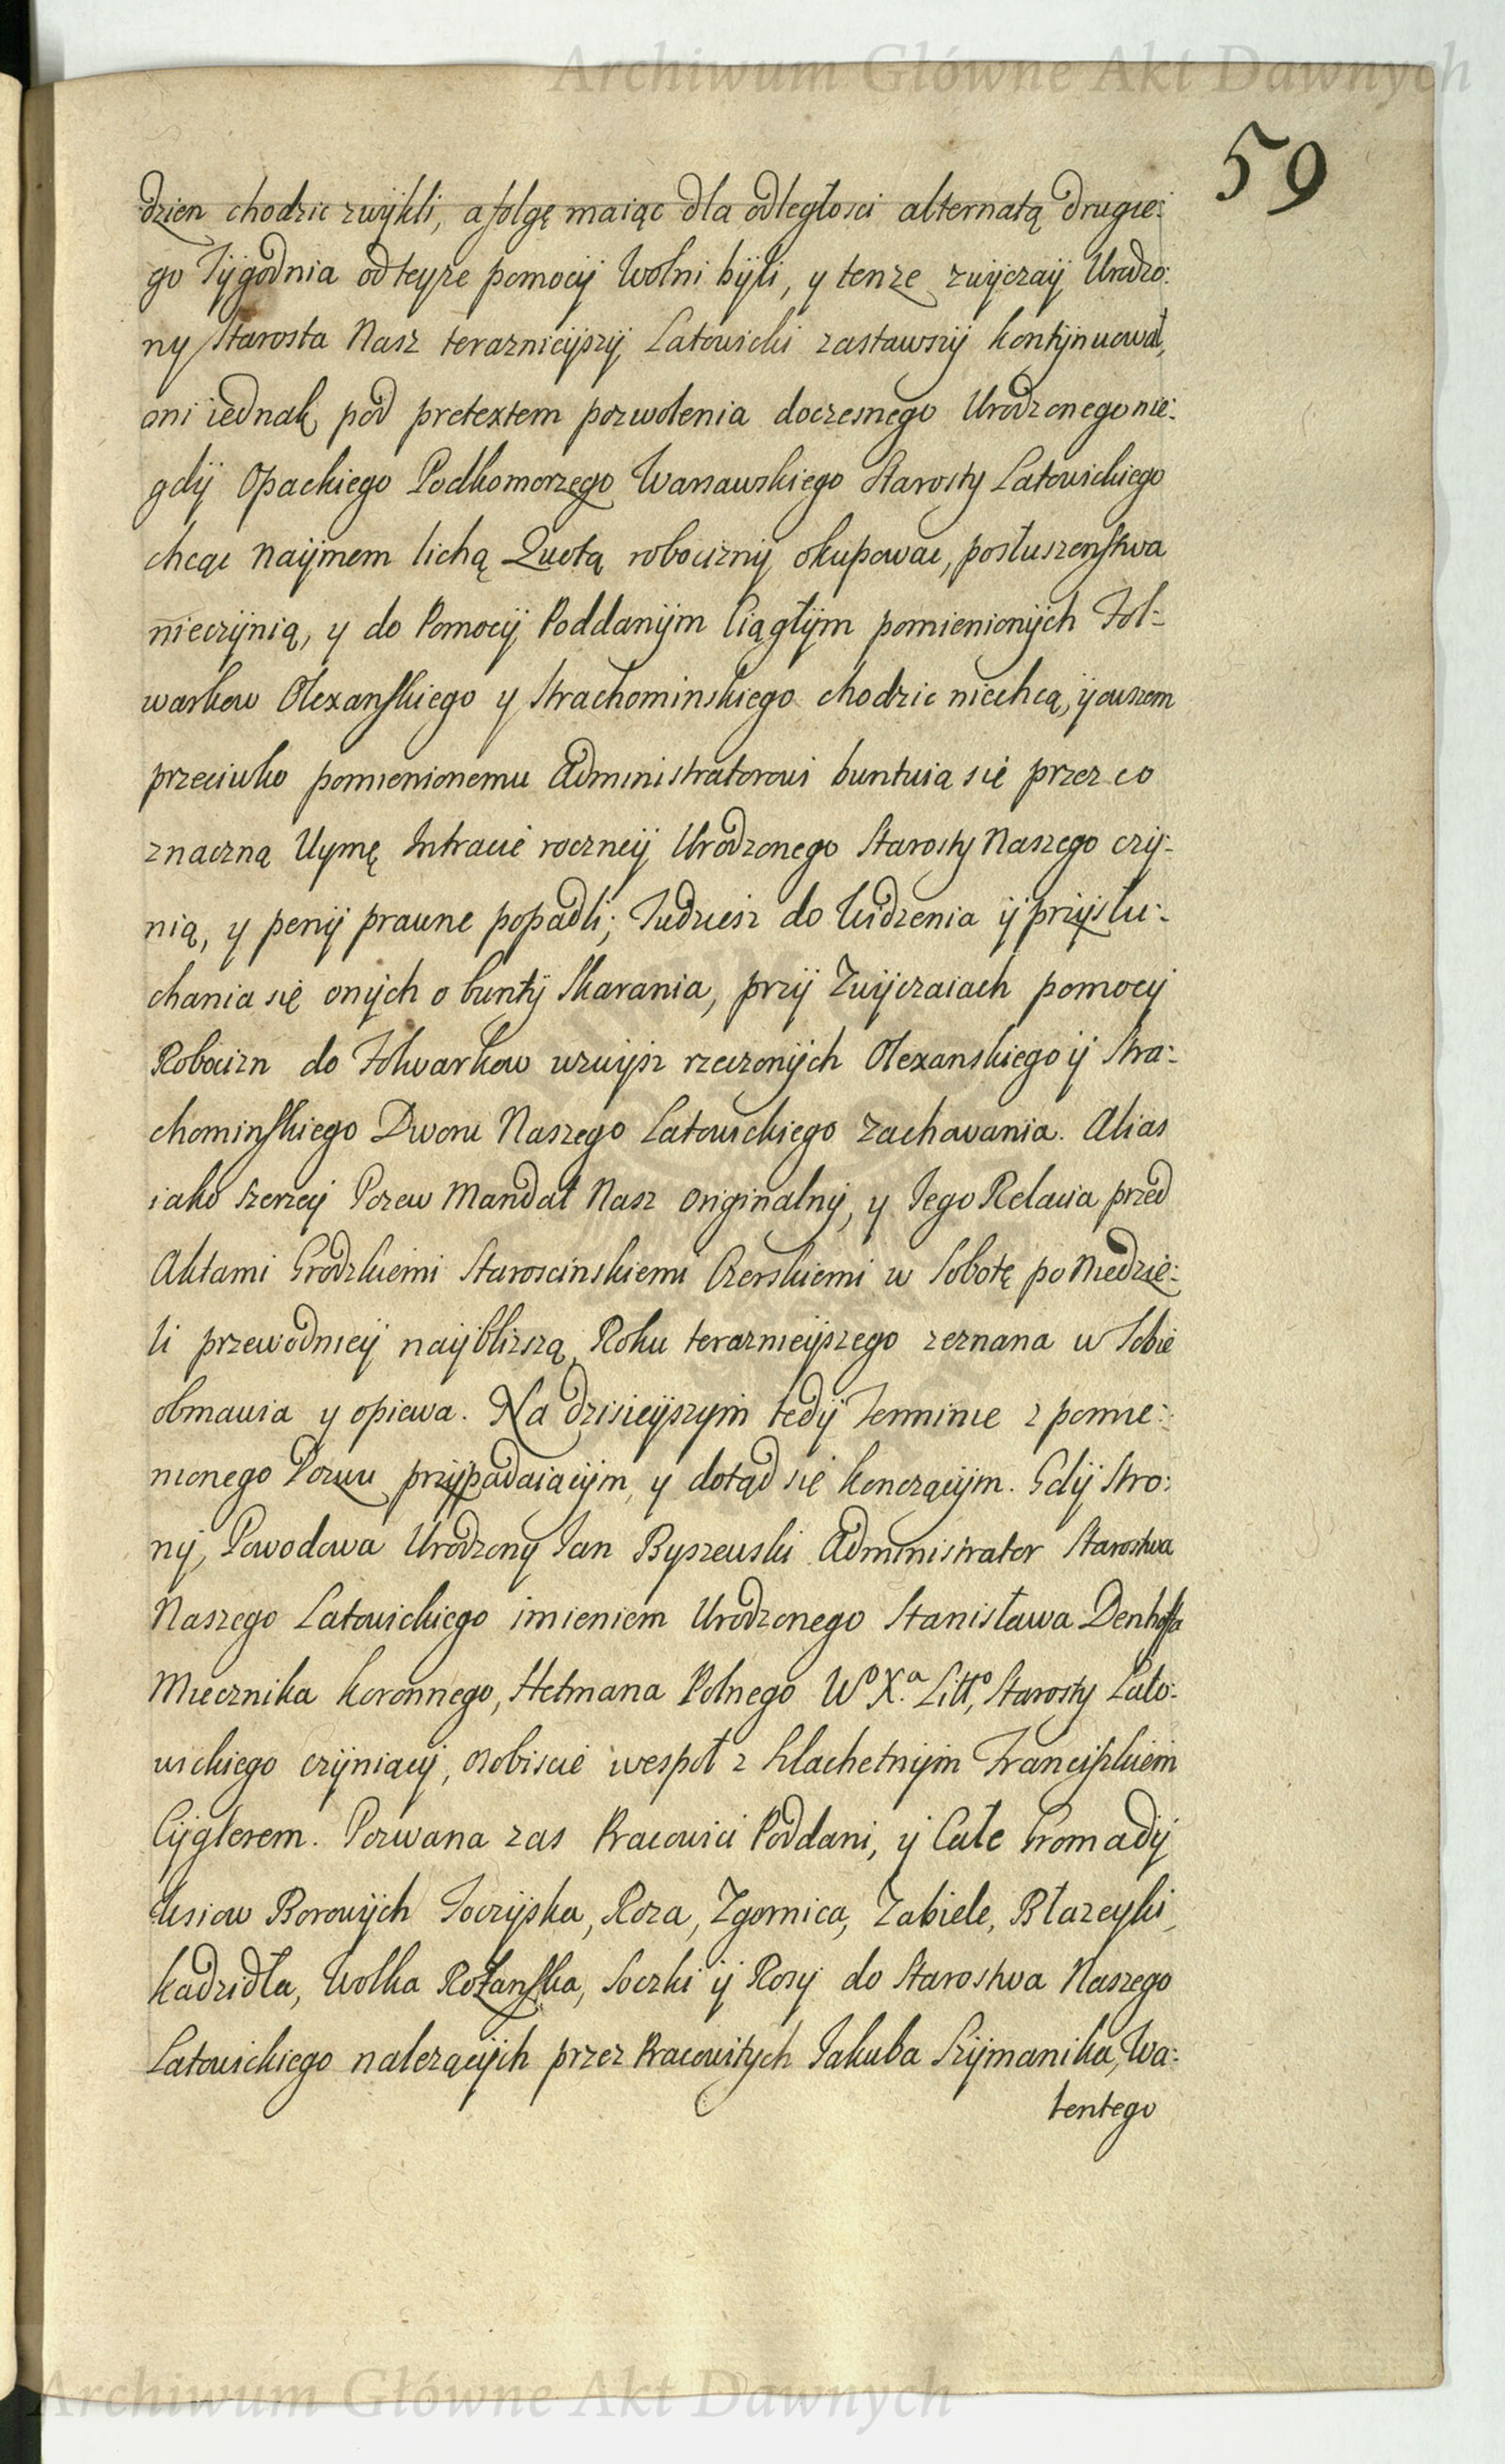 Archiwum Główne Akt Dawnych
59
dzien chodzic zwykli, a folgę maiąc dla odległosci alternatą drugie:
go Tÿgodnia od teyże pomocÿ Wolni bÿli, y tenże zwÿczaÿ Urodzo:
ny Starosta Nasz teraznieÿszÿ Latowicki zastawszÿ kontÿnuował,
oni iednak pod pretextem pozwolenia doczesnego Urodzonego nie:
gdÿ Opackiego Podkomorzego Warsawskiego Starosty Latowickiego
chcąc naÿmem lichą Quotą robociznÿ okupowac, posłuszenstwa
nieczÿnią, y do Pomocÿ Poddanÿm Ciągłÿm pomienionÿch Fol:
warkow Olexanskiego y Strachominskiego chodzic niechcą, ÿ owszem
przeciwko pomienionemu Administratorowi buntuią się przez co
znaczną Uymę Intracie rocznÿ Urodzonego Starosty Naszego czÿ:
nią, y penÿ prawne popadli; Tudziesz do Widzenia ÿ przÿsłu:
chania się onÿch o buntÿ Skarania, przÿ Zwÿczaiach pomocÿ
Robocizn do Folwarkow wzwÿsz rzeczonÿch Olexanskiego ÿ Stra:
chominskiego Dworu Naszego Latowickiego zachowania. Alias
iako szerzeÿ Pozew Mandat Nasz originalnÿ, y Jego Relacia przed
Aktami Grodzkiemi Staroscinskiemi Czerskiemi w Sobotę po Niedzie:
li przewodnieÿ naÿblizszą, Roku teraznieÿszego zeznana w Sobie
obmawia y opiewa. Na dzisieÿszÿm tedÿ Terminie z pomie:
nionego Pozwu przÿpadaiącÿm, y dotąd się konczącÿm. Gdÿ Stro:
nÿ, Powodowa Urodzony Jan Byszewski Administrator Starostwa
Naszego Latowickiego imieniem Urodzonego Stanisława Denhoffa
Miecznika koronnego, Hetmana Polnego Wº Xª Littº, Starosty Lato:
wickiego czÿniącÿ, osobiscie wespoł z Szlachetnÿm Franciszkiem
Cÿglerem. Pozwana zas Pracowici Poddani, ÿ Całe Gromadÿ
Wsiow Borowÿch Joczÿska, Roza, Zgornica, Zabiele, Błazeyki,
kadzidła, Wolka Rożanska, Soczki ÿ Rosÿ do Starostwa Naszego
Latowickiego należącÿch przez Pracowitych Jakuba Szÿmanika, Wa:
lentego
Archiwum Główne Akt Dawnych